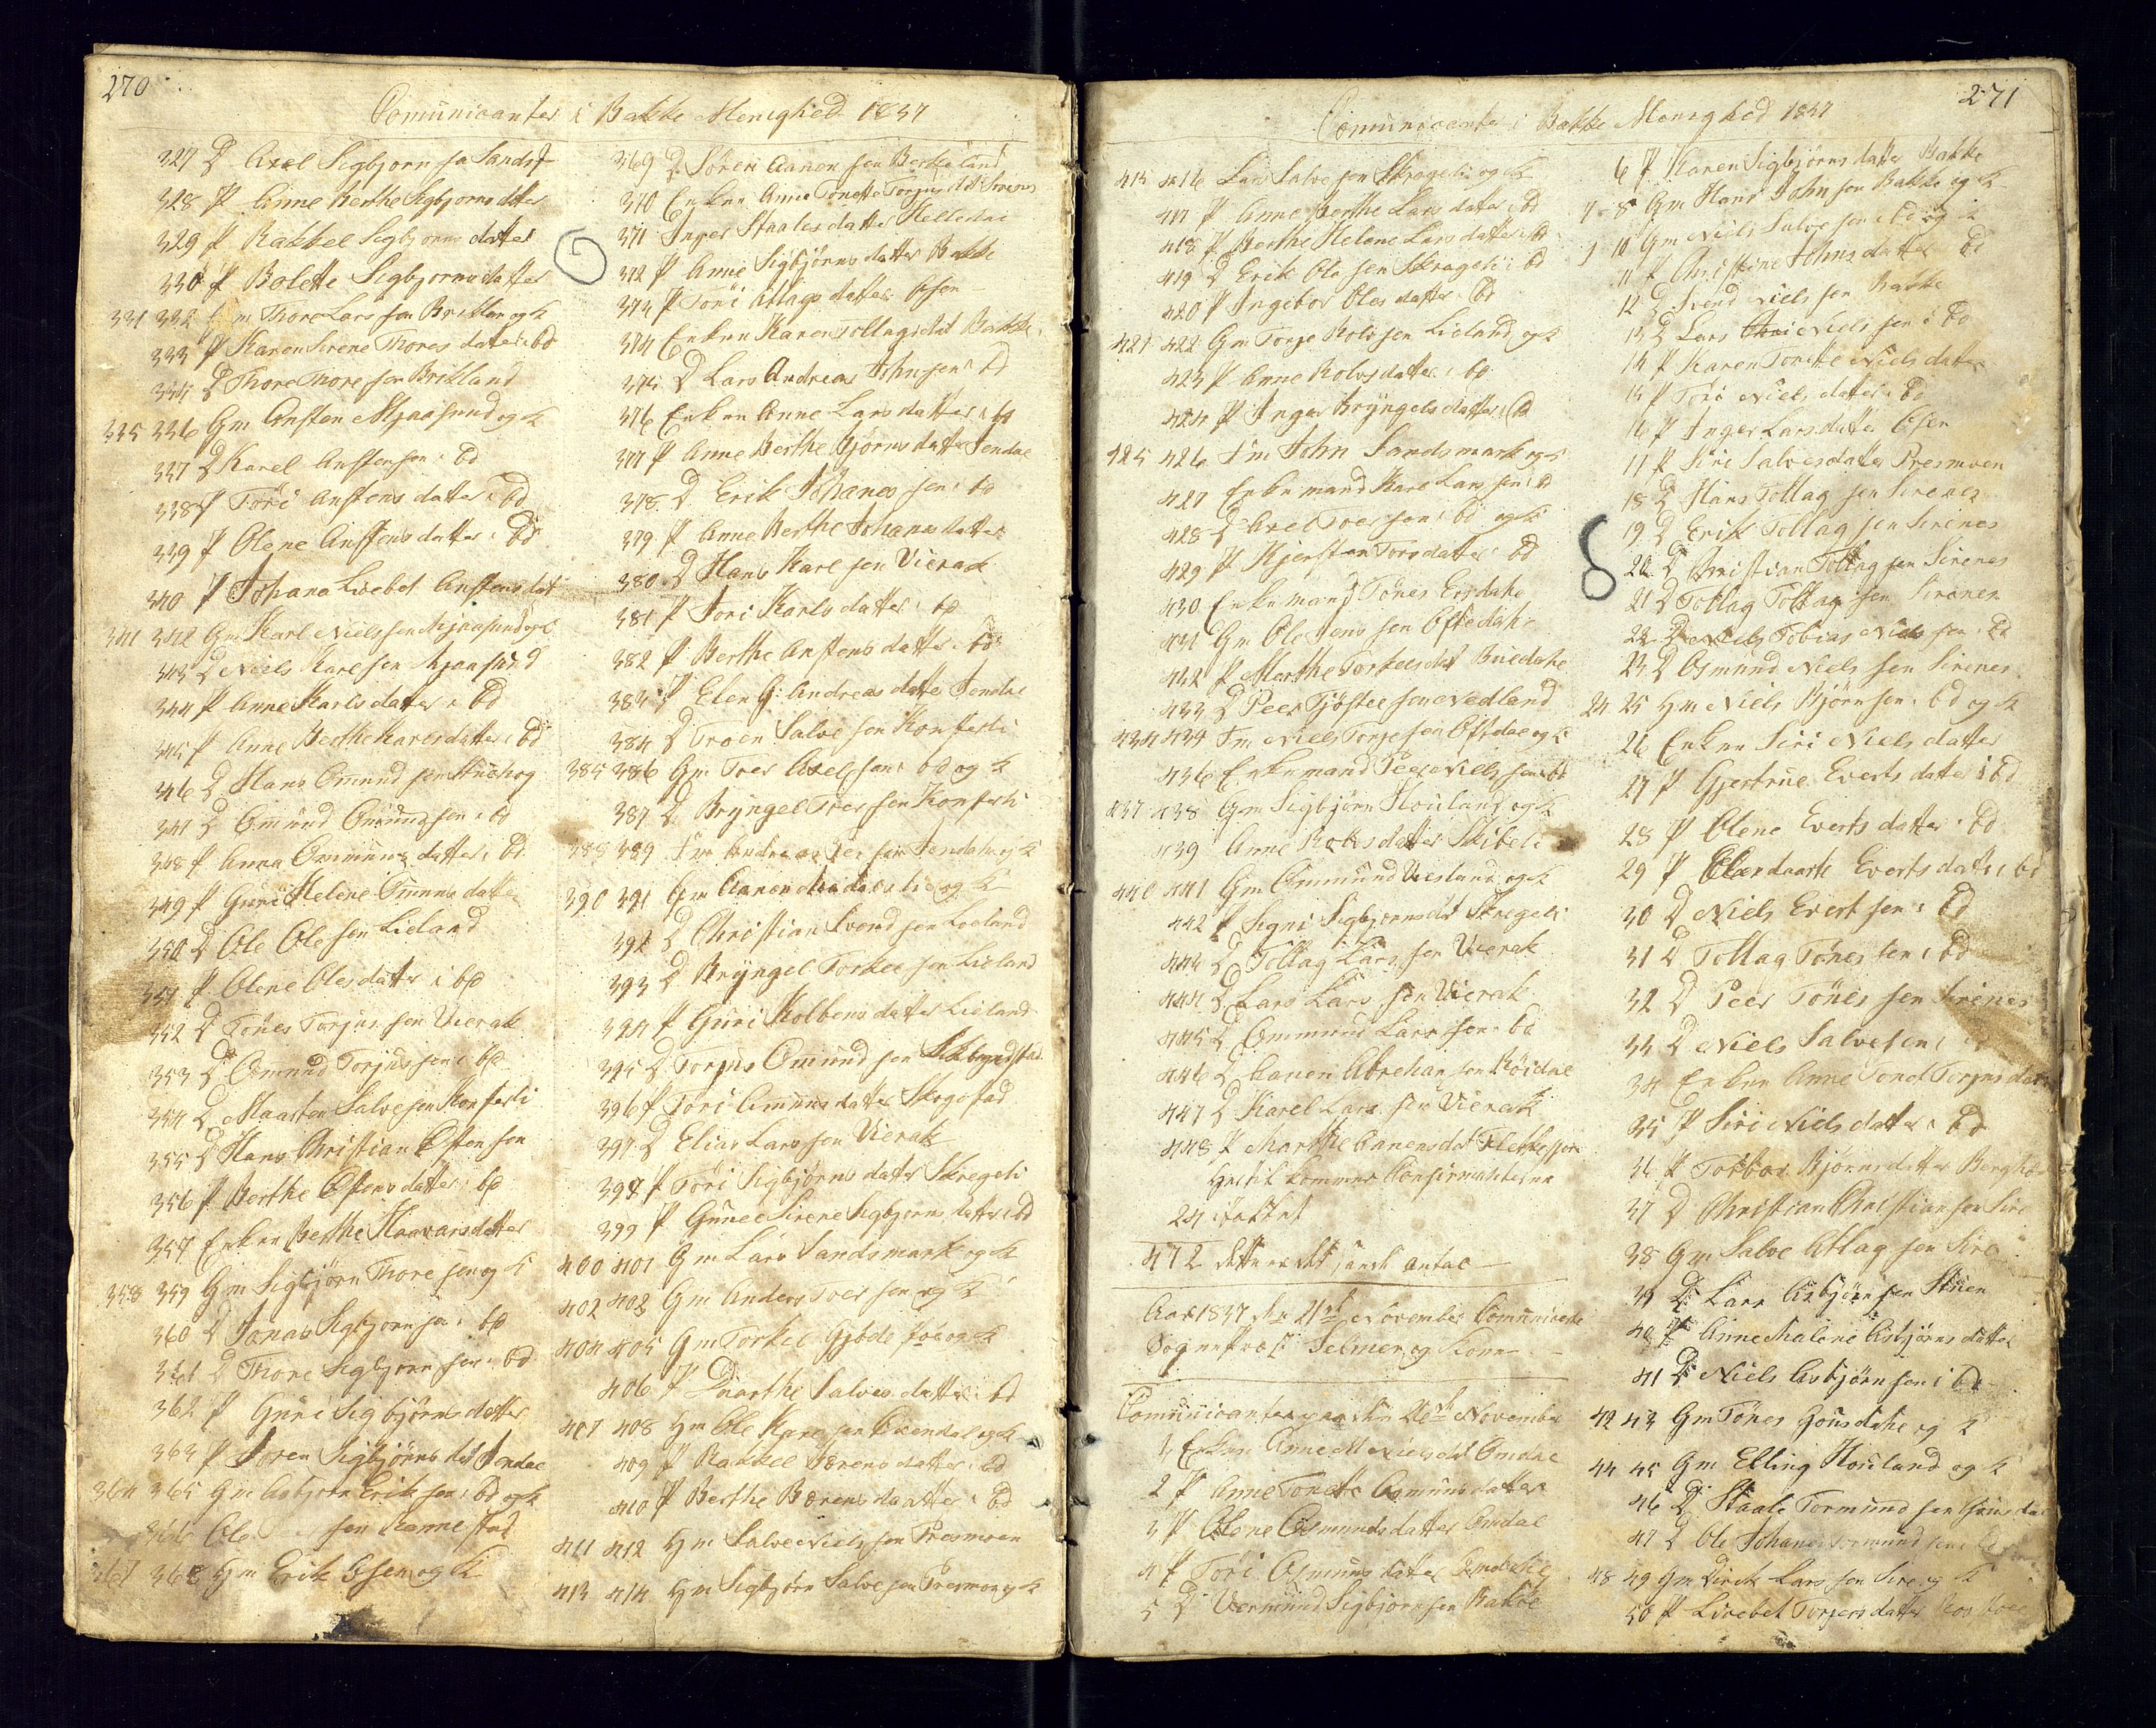 270
Comunicanter i Bakke Menighed 1837
327 D Axel Sigbjørn sø Sands
328 P Anne Berthe Sigbjørns dtter
329 P Rakkel Sigbjørns datter
330 P Bolette Sigbjørns datter
331 332 Gm Thore Lars søn og K
333 P Karen Sirene Thores datter i bd
334 D Thore Thore søn Birkland
335 336 Gm Ansten Mjaasund og K
337 D Karel Ansten sen i bd
338 P Töri Anstens datter i bd
339 P Olene Anstens datter i bd
340 P Johana Lisebet Anstens dat
341 342 Gm Karl Niels sen Mjaasund og K
343 D Niels Karl sen Mjaasund
344 P Anne Karls datter i bd
345 P Anne Berthe Karls datter i bd
346 D Hans Omund sen
347 D Omund Omund sen i bd
348 P Anna Ommuns datter i bd
349 P Guri Helene Omuns datter
350 D Ole Ole sen Lieland
351 P Olene Oles datter i bd
352 D Tönes Torjus sen Vierak
353 D Omund Torjus sen i bd
354 D Maarten Salve sen Konsterli
355 D Hans Christian Osten sen
356 P Berthe Ostens datter i bd
357 Enken Berthe Haavars datter
358 359 Gm Sigbjörn Thore sen og K
360 D Jonas Sigbjorn sø i bd
361 D Thore Sigbjorn sen i bd
362 P Guri Sigbjörns datter
363 P Soren Sigbjörns dat Jendal
364 365 Gm Asbjorn Erik sen i bd og K
366 Ole sen Rannestad
367 368 Hm Erik Osen og K
369 D Sören Aanen sen
370 Enken Anne Tonette Torjus dat Sirenes
371 Inger Staales datter
372 P Anne Sigbjörns datter Bakke
373 P Töri Atlags datter Osen
374 Enken Karen Tollags dat Bakke
375 D Lars Andreas John sen i bd
376 Enken Anne Lars datter i bd
377 P Anne Berthe Bjørns datter Jendal
378 D Erik Johanes sen i bd
379 P Anne Berthe Johanes datter
380 D Hans Karl sen Vierak
381 P Jori Karls datter i bd
382 P Berthe Anstens datter i bd
383 P Elen G: Andreas datter Jendal
384 D Troen Salve sen Konsterli
385 386 Gm Toer Axel sen i bd og K
387 D Bryngel Toer sen Konsterli
388 389 Im Andreas sen Jendal og K
390 391 Gm Aanen og K
392 D Christian Svend sen Loeland
393 D Bryngel Torkel sen Lieland
394 P Guri Kolbens datter Lieland
395 D Torjus Omund sen
396 P Töri Omuns datter
397 D Elias Lars sen Vierak
398 P Töri Sigbjörns datter Skregeli
399 P Gunele Sirene Sigbjorns datter i bd
400 401 Gm Lars Sandsmark og K
402 403 Gm Anders Toer sen og K
404 405 Gm Torkil Gjbede søe og K
406 P Maarthe Salves datter i bd
407 408 Hm Ole Karl sen Osendal og K
409 P Rakkel Sørens datter i bd
410 P Berthe Børens daatter i bd
411 412 Hm Salve Niels sen Presmoen
413 414 Hm Sigbjörn Salve sen Presmo og K
271
Comunicanter i Bakke Menighed 1837
415 416 Lars Salve sen Skregeli og K
417 P Anne Berthe Lars datter i bd
418 P Berthe Helene Lars datter i bd
419 D Erik Ole sen Skregeli i bd
420 P Ingebor Oles datter i bd
421 422 Gm Torje Rolv sen Lieland og K
423 P Anne Rolvs datter i bd
424 P Inger Bryngels datter i bd
425 426 Im John Sandsmark og K
427 Enkemand Karl Lars sen i bd
428 D Axel Toer sen i bd og K
429 P Kjersten Tors datter i bd
430 Enkemand Tönes Ersdahl
431 Gm Ole Jens sen Oftedahl
432 P Marthe Torkels dat Buedahl
433 D Peer Tjöstel sen Nedland
434 434 Im Niels Torje sen Oftedal og K
436 Enkemand Peer Niels sen i bd
437 438 Gm Sigbjörn Houland og K
439 Anne Rolvs datter Skibeli
440 441 Gm Ommund Vesland og K
442 P Signi Sigbjorns dat Skregeli
443 D Tollag Lars sen Vierak
444 D Lars Lars sen Vierak
445 D Ommund Lars sen i bd
446 D Aanen Abreham sen Röisdal
447 D Karel Lars sen Vierak
448 P Marthe Aanens dat
Hertil kommer Confirmanterne
24 i Tallet
472 dette er det sande antal
Aar 1837 den 21de November Comunicerte
Sognepræst Selmer og Kone
Comunicanter paa den 26de November
1 Enken Anne M Niels dat Omdal
2 P Anne Tonette Asmuns datter
3 P Olene Osmunds datter Omdal
4 P Töri Osmuns datter
5 D Vermund Sigbjorn sen Bakke
6 P Karen Sigbjörns datter Bakke
7 8 Gm Hans John sen Bakke og K
9 10 Gm Niels Salve sen i bd og K
11 P Christine Johns datter i bd
12 D Svend Niels sen Bakke
13 D Lars Niels sen i bd
14 P Karen Tonette Niels datter
15 P Töri Niels datter i bd
16 P Inger Lars datter Osen
17 P Siri Salves datter Presmoen
18 D Hans Tollag sen Sirenes
19 D Erik Tollag sen Sirenes
20 D Christian Tollag sen Sirenes
21 D Tollag Tollag sen Sirenes
22 D Niels Tobias Niels sen i bd
23 D Osmund Niels sen Sirenes
24 25 Hm Niels Bjørn sen i bd og K
26 Enken Siri Niels datter
27 P Gjertrue Everts datter i bd
28 P Olene Everts datter i bd
29 P Everts datter i bd
30 D Niels Evert sen i bd
31 D Tollag Tönes sen i bd
32 D Peer Tönes sen Sirenes
33 D Niels Salve sen i
34 Enken Anne Tonet Torjus dat
35 P Siri Niels datter i bd
36 P Torbor Bjørns datter
37 D Christian Christian sen Sire
38 Gm Salve Atlag sen Sire
39 D Lars Asbjörn sen Stuen
40 P Anne Malene Asbjörns datter
41 D Niels Asbjörn sen i bd
42 43 Gm Tönes Gousdahl og K
44 45 Gm Elling Houland og K
46 D Staale Tormund sen
47 D Ole Johanes Tormund sen
48 49 Gm Dirik Lars sen Sire og K
50 P Lisebet Torjers datter